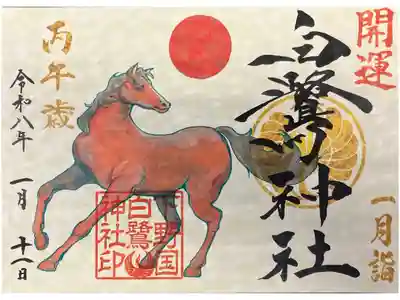 開運
一月詣
白鷺神社
丙午歳
令和八年 一月 十一日
下野国
白鷺
神社印